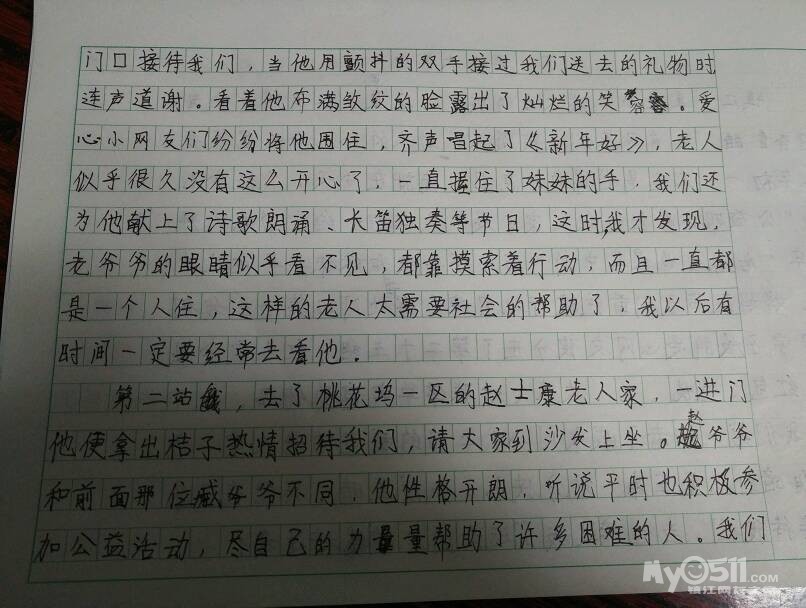 门口接待我们，当他用颤抖的双手接过我们送去的礼物时
连声道谢。看着他布满皱纹的脸露出了灿烂的笑容。爱
心小网友们纷纷将他围住，齐声唱起了《新年好》，老人
似乎很久没有这么开心了，一直握住了妹妹的手，我们还
为他献上了诗歌朗诵、长笛独奏等节日，这时，我才发现，
老爷爷的眼睛似乎看不见，都靠摸索着行动，而且一直都
是一个人住，这样的老人太需要社会的帮助了，我以后有
时间一定要经常去看他。
第二站，去了桃花坞一区的赵士康老人家，一进门
他便拿出桔子热情招待我们，请大家到沙发上坐。赵爷爷
和前面那位臧爷爷不同，他性格开朗，听说平时也积极参
加公益活动，尽自己的力量帮助了许多困难的人。我们
MY0511.COM
镇江网友之家